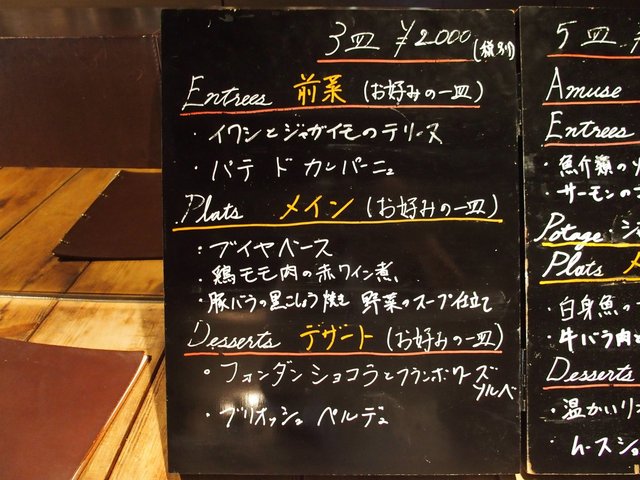 3皿 ¥2000(税別)
Entrees 前菜(お好みの一皿)
・イワシとジャガイモのテリーヌ
・パテ ド カンパーニュ
Plats メイン(お好みの一皿)
・ブイヤベース
・鶏モモ肉の赤ワイン煮
・豚バラの黒こしょう焼き 野菜のスープ仕立て
Desserts デザート(お好みの一皿)
・フォンダンショコラとフランボワーズ
ソルベ
・ブリオッシュ ペルデュ
5皿
Amuse
Entrees
・魚介類の
・サーモンの
Potage・
Plats
・白身魚の
・牛バラ肉と
Desserts
・温かいリ
・ムースショ